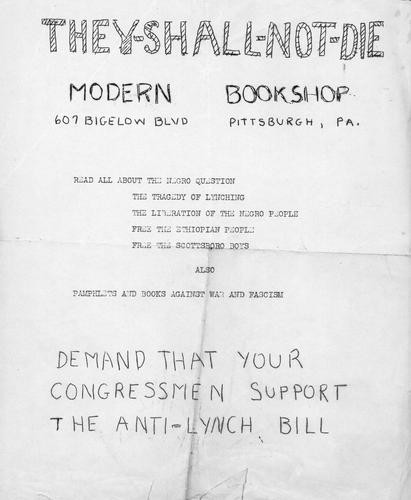 THEY-SHALL-NOT-DIE
MODERN BOOKSHOP
607 BIGELOW BLVD PITTSBURGH, PA.
READ ALL ABOUT THE NEGRO QUESTION
THE TRAGEDY OF LYNCHING
THE LIBERATION OF THE NEGRO PEOPLE
FREE THE ETHIOPIAN PEOPLE
FREE THE SCOTTSBORO BOYS
ALSO
PAMPHLETS AND BOOKS AGAINST WAR AND FASCISM
DEMAND THAT YOUR
CONGRESSMEN SUPPORT
THE ANTI-LYNCH BILL